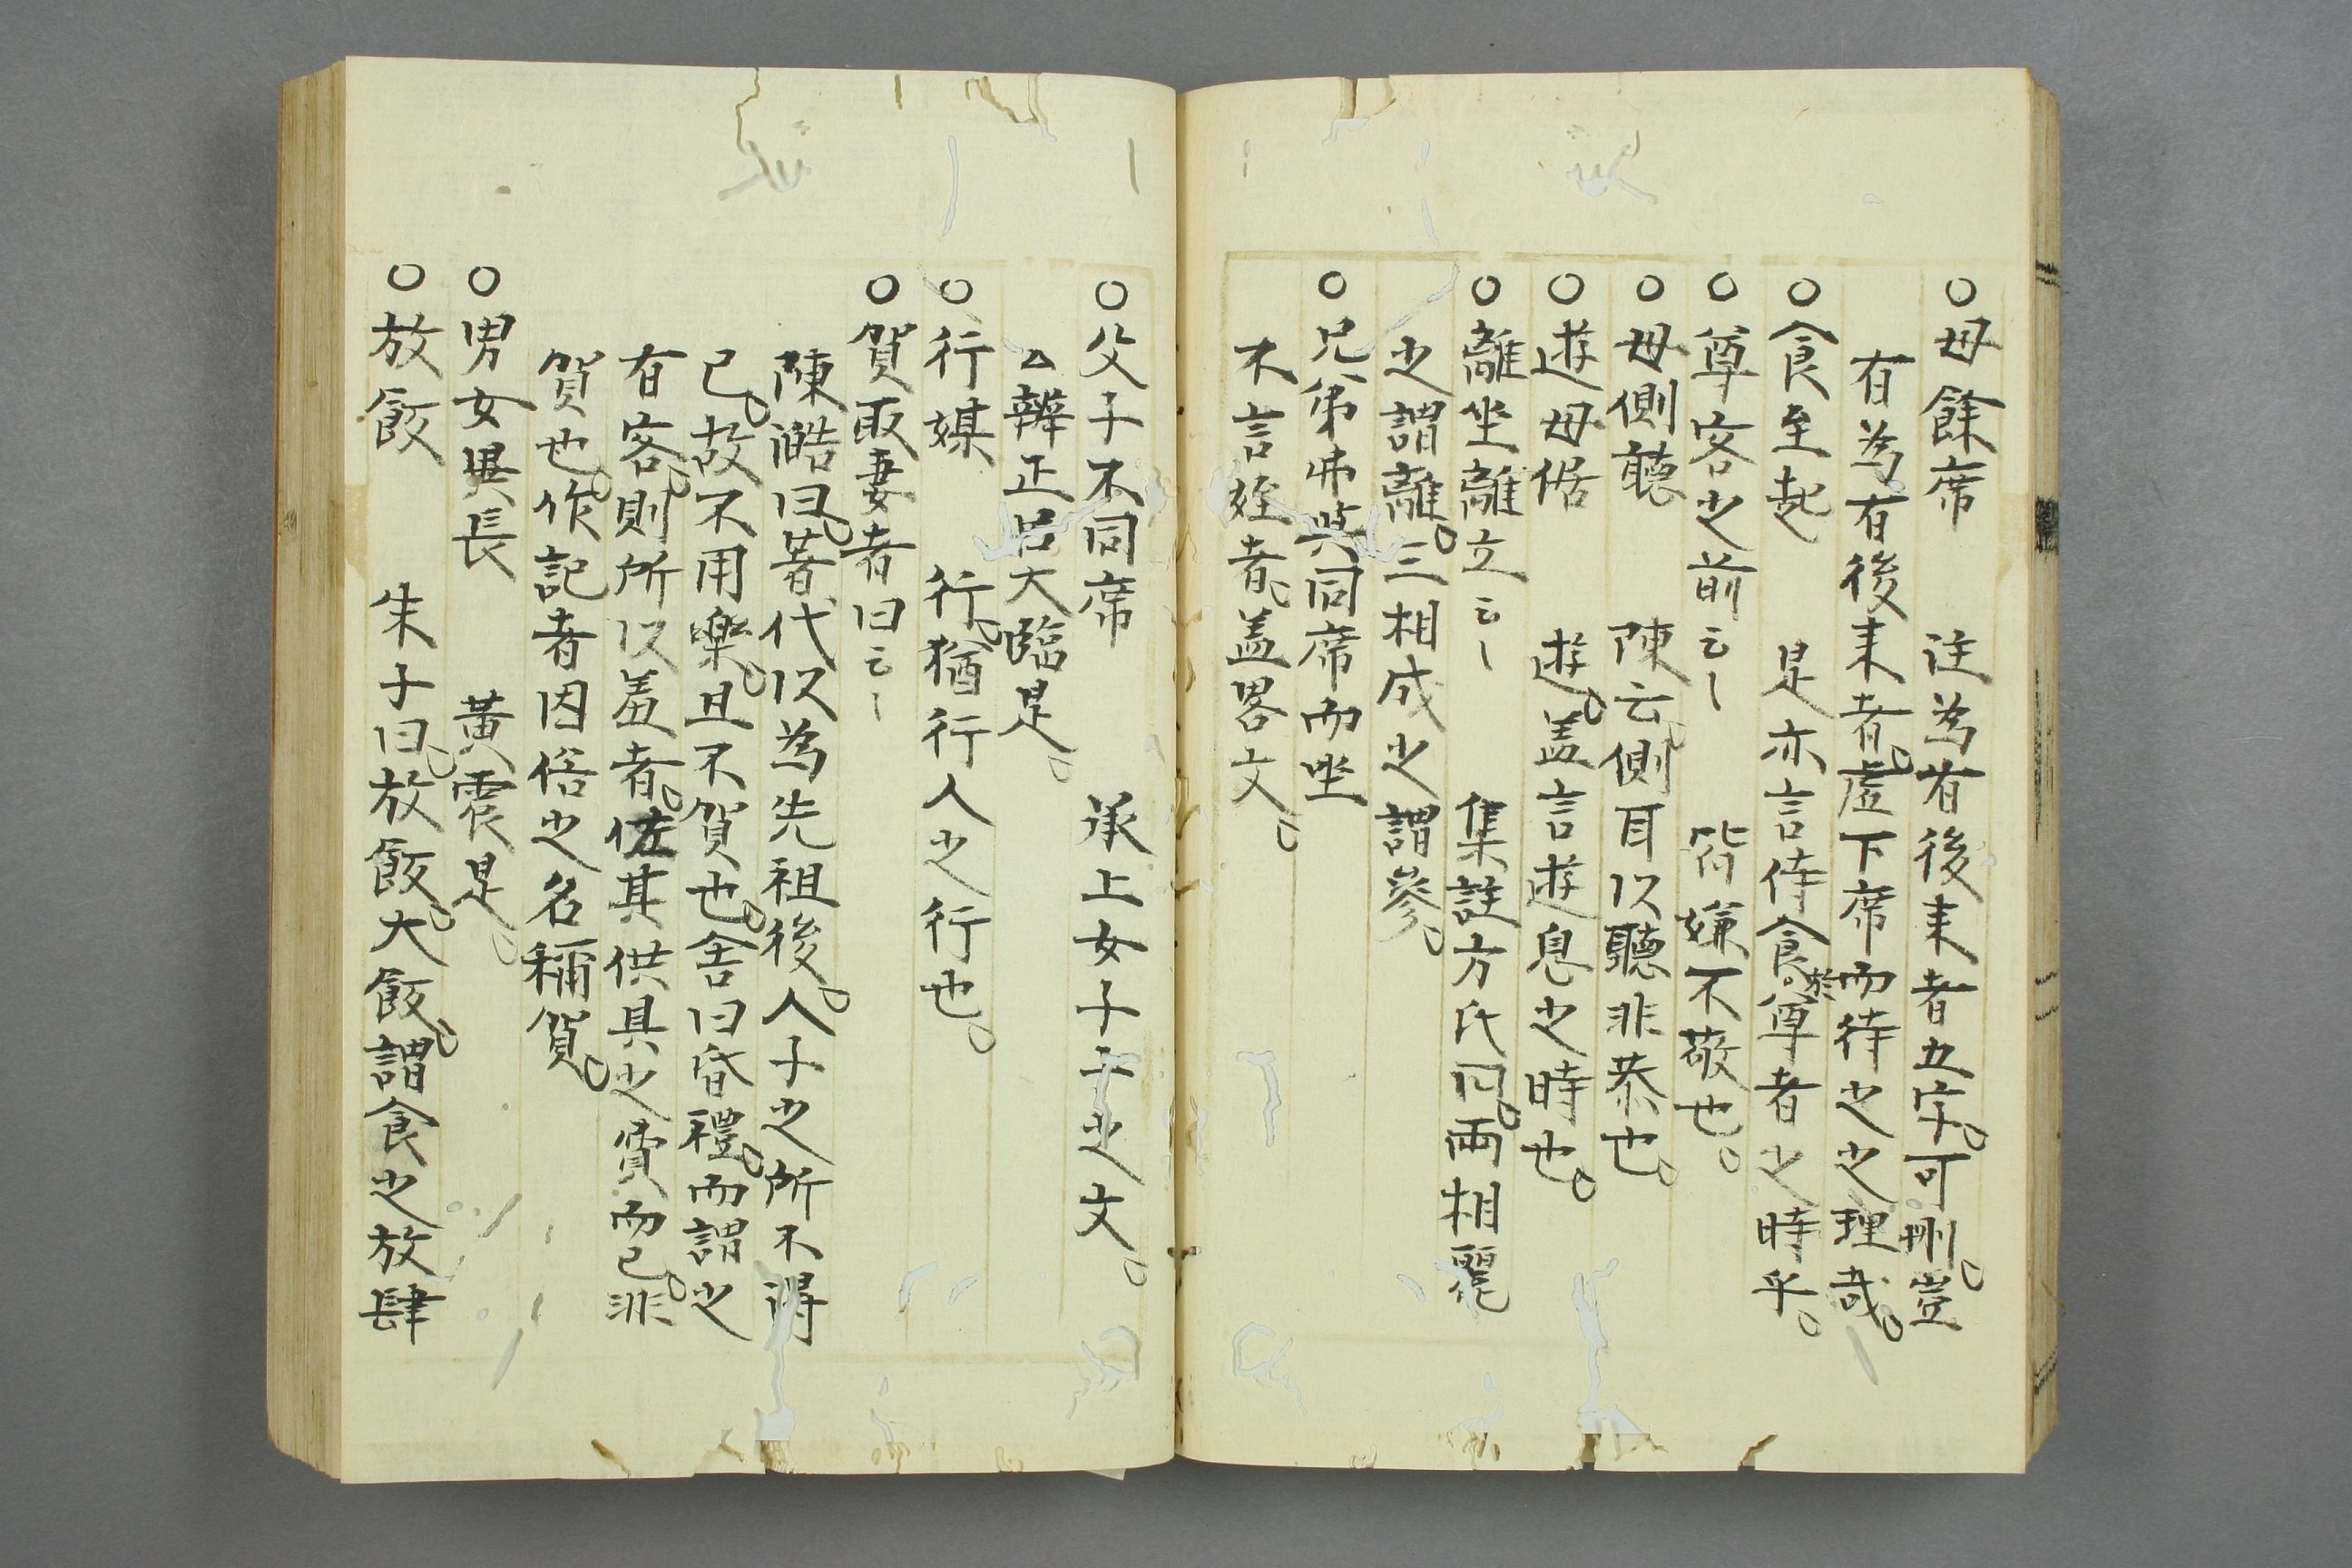 ○毋餘席　註為有後来者五字。可刪。豈
有為。有後来者。虛下席而待之之理哉。
○食至起　是亦言侍食於尊者之時乎。
○尊客之前云〻　皆嫌不敬也。
○毋側聽　陳云。側耳以聽非恭也。
○遊毋倨　遊。盖言遊息之時也。
○離坐離立云〻　集註方氏曰。兩相麗
之謂離。三相成之謂參。
○兄弟弗與同席而坐
不言姪者。盖畧文。
○父子不同席　承上女子子之文。
△辨正呂大臨是。
○行媒　行。猶行人之行也。
○賀取妻者曰云〻
陳澔曰。著代以為先祖後。人子之所不得
已。故不用樂。且不賀也。舍曰昏禮。而謂之
有客。則所以羞者。佐其供具之費而已。非
賀也。作記者因俗之名稱賀。
○男女異長　黃震是。
○放飯　朱子曰。放飯。大飯。謂食之放肆